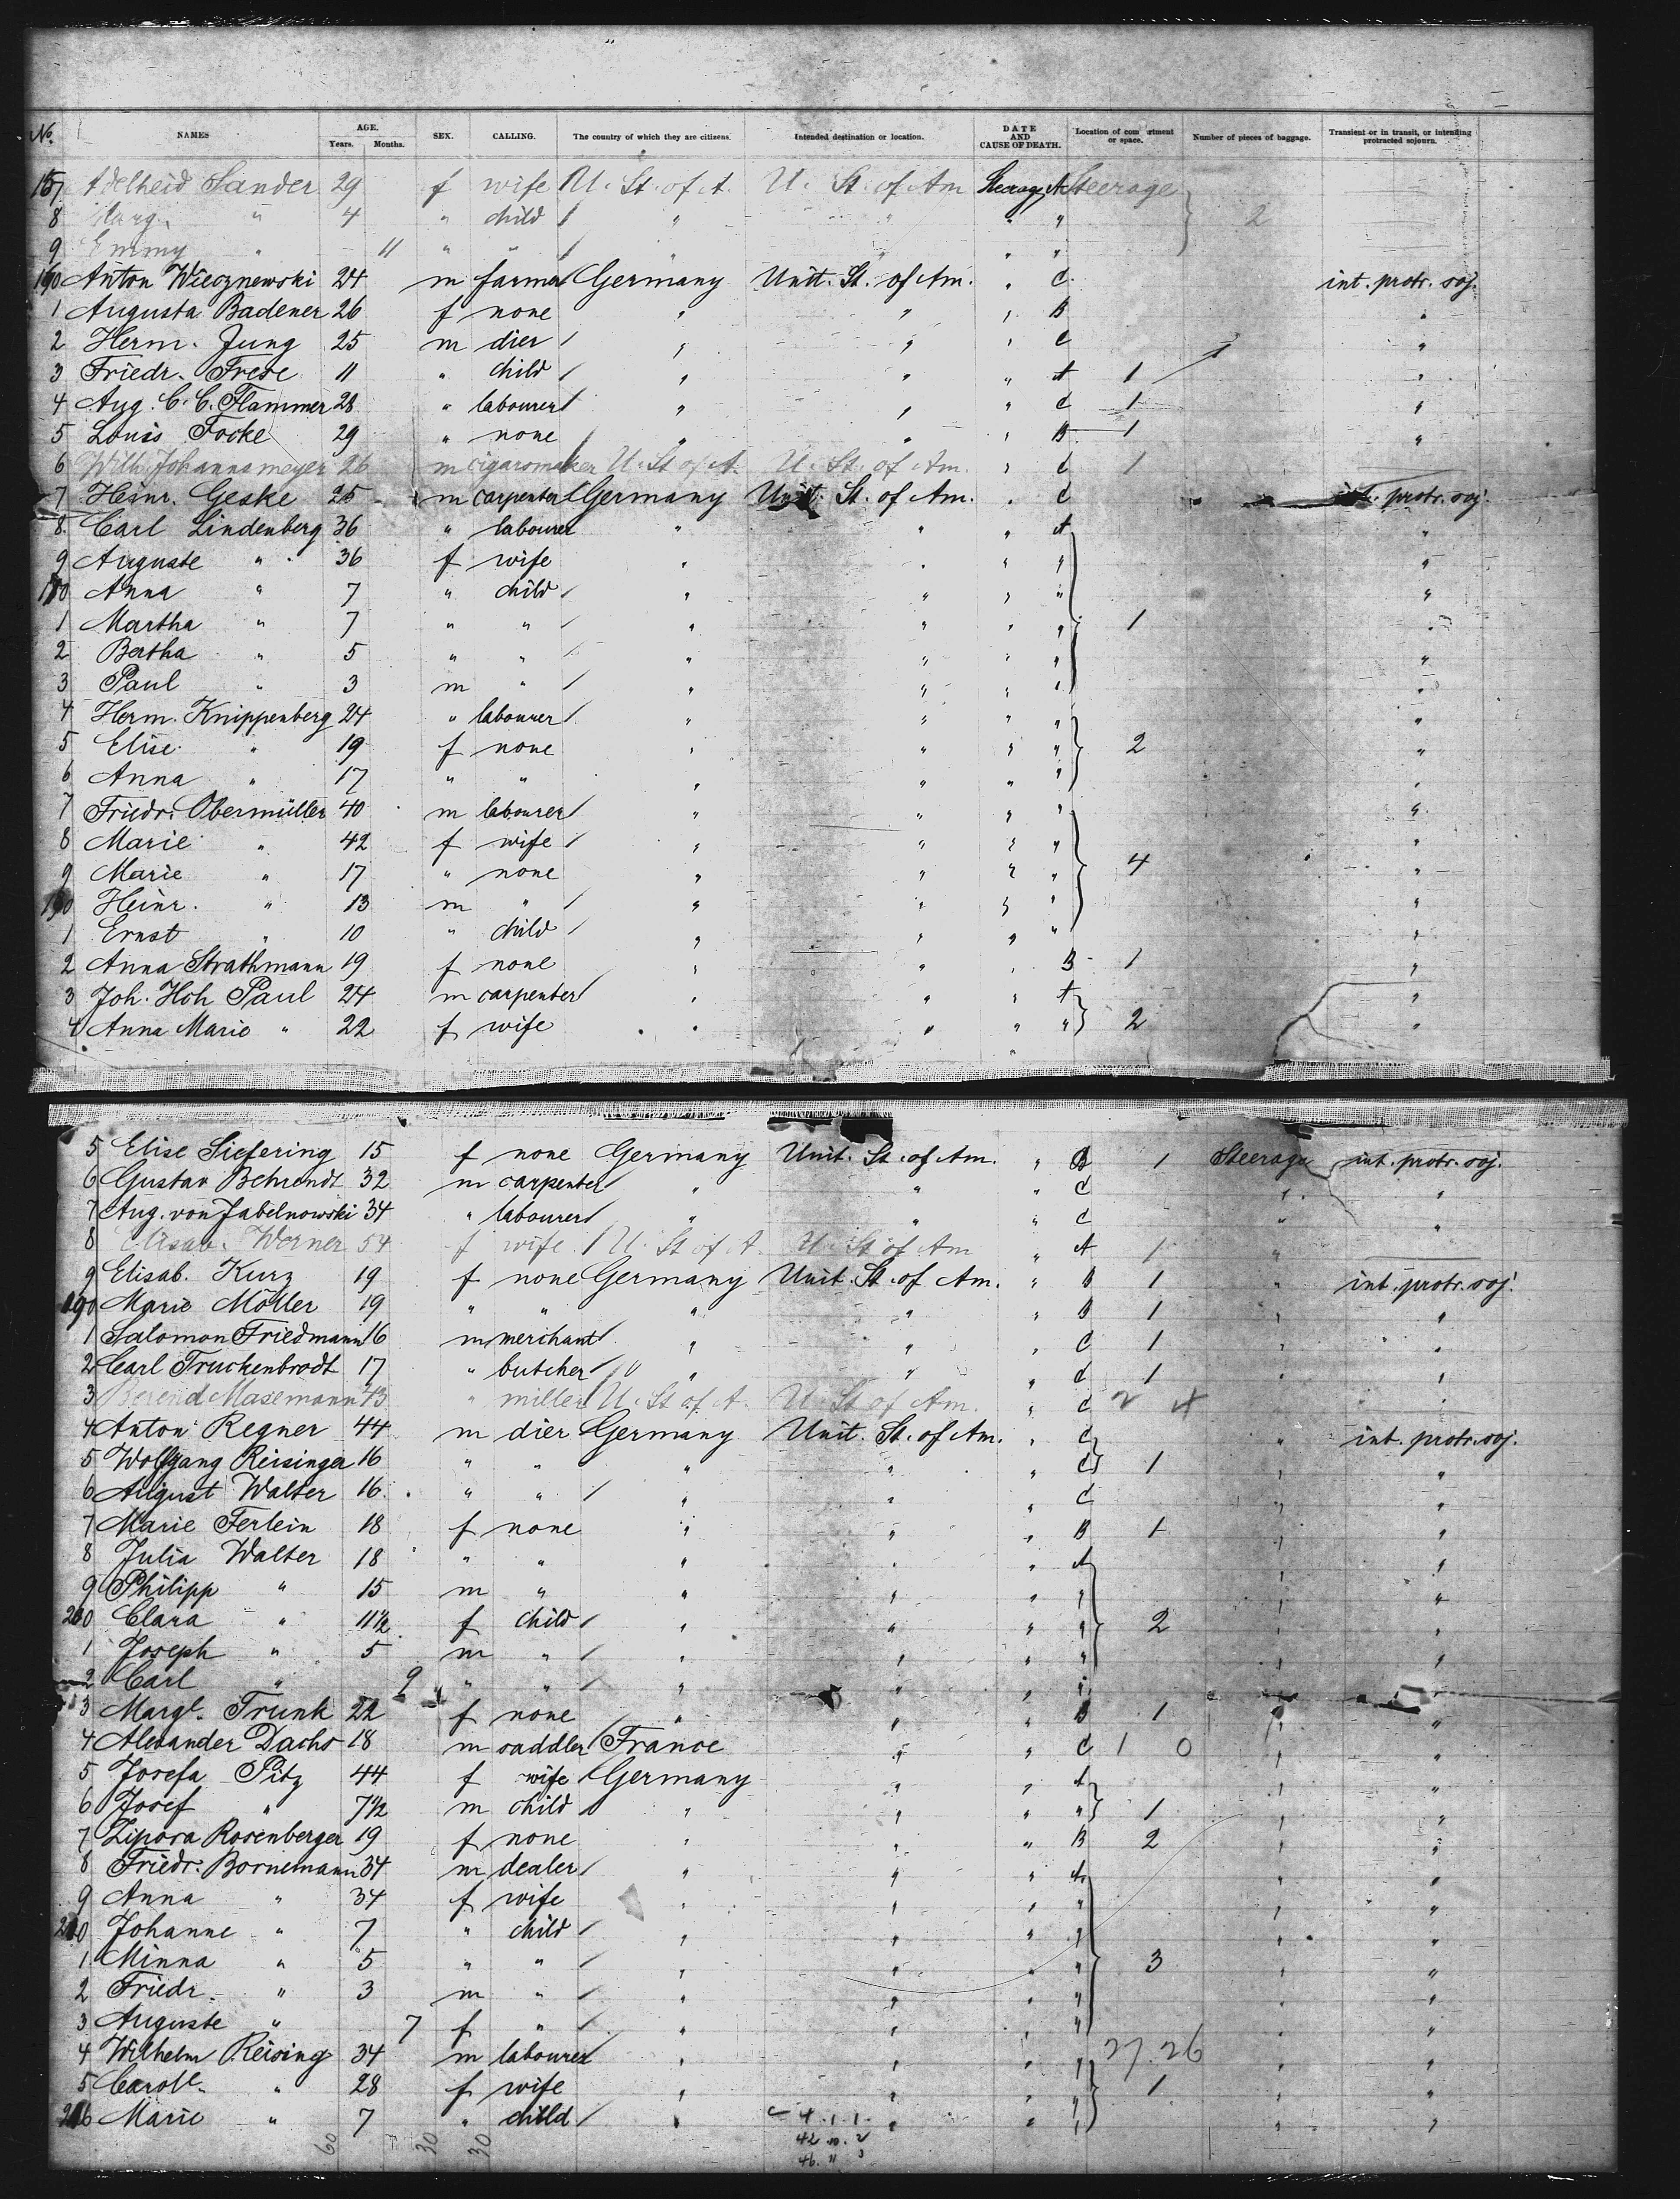 No. NAMES AGE. Years. Months. SEX. CALLING. The country of which they are citizens. Intended destination or location. DATE AND CAUSE OF DEATH. Location of compartment or space. Number of pieces of baggage. Transient or in transit, or intending protracted sojourn.
157 Adelheid Sander 29 f wife U. St. of A. U. St. of Am Steerage A Steerage
8 Marg. " 4 " child " " " " 2
9 Emmy " 11 " " " " " "
160 Anton Wiecznewski 24 m farmer Germany Unit. St. of Am. " C. int. protr. soj.
1 Augusta Badener 26 f none " " " B "
2 Herm. Jung 25 m dier " " " C "
3 Friedr. Frese 11 " child " " " A 1 "
4 Aug. C. C. Flammer 28 " labourer " " " C 1 "
5 Louis Focke 29 " none " " " B 1 "
6 Wilh. Johannsmeyer 26 m cigaromaker U. St. of A. U. St. of Am. " C 1
7 Heinr. Geske 25 m carpenter Germany Unit. St. of Am. " C int. protr. soj.
8 Carl Lindenberg 36 " labourer " " " A "
9 Auguste " 36 f wife " " " " "
170 Anna " 7 " child " " " " "
1 Martha " 7 " " " " " " 1 "
2 Bertha " 5 " " " " " " "
3 Paul " 3 m " " " " " "
4 Herm. Knippenberg 24 " labourer " " " " "
5 Elise " 19 f none " " " " 2 "
6 Anna " 17 " " " " " " "
7 Friedr. Obermüller 40 m labourer " " " " "
8 Marie " 42 f wife " " " " "
9 Marie " 17 " none " " " " 4 "
180 Heinr. " 13 m " " " " " "
1 Ernst " 10 " child " " " " "
2 Anna Strathmann 19 f none " " " B 1 "
3 Joh. Hch Paul 24 m carpenter " " " A "
4 Anna Marie " 22 f wife " " " " 2 "
5 Elise Siefering 15 f none Germany Unit. St. of Am. " B 1 Steerage int. protr. soj.
6 Gustav Behrendt 32 m carpenter " " " C " "
7 Aug. von Jabelnowski 34 " labourer " " " C " "
8 Elisab. Werner 54 f wife U. St. of A. U. St. of Am " A 1 "
9 Elisab. Kurz 19 f none Germany Unit. St. of Am. " B 1 " int. protr. soj.
190 Marie Möller 19 " " " " " B 1 " "
1 Salomon Friedmann 16 m merchant " " " C 1 " "
2 Carl Truckenbrodt 17 " butcher " " " C 1 " "
3 Berend Masemann 43 " miller U. St. of A. U. St. of Am. " C 2 4 "
4 Anton Regner 44 m dier Germany Unit. St. of Am. " C " int. protr. soj.
5 Wolfgang Reisinger 16 " " " " " C 1 " "
6 August Walter 16 " " " " " C " "
7 Marie Ferlein 18 f none " " " B 1 " "
8 Julia Walter 18 " " " " " A " "
9 Philipp " 15 m " " " " " " "
200 Clara " 11½ f child " " " " 2 " "
1 Joseph " 5 m " " " " " " "
2 Carl " 9 " " " " " " " "
3 Margt. Trunk 22 f none " " " B 1 " "
4 Alexander Dachs 18 m saddler France " " C 1 0 " "
5 Josefa Pitz 44 f wife Germany " " A " "
6 Josef " 7½ m child " " " " 1 " "
7 Zipora Rosenberger 19 f none " " " B 2 " "
8 Friedr. Bornemann 34 m dealer " " " A " "
9 Anna " 34 f wife " " " " " "
210 Johanne " 7 " child " " " " " "
1 Minna " 5 " " " " " " 3 " "
2 Friedr. " 3 m " " " " " " "
3 Auguste " 7 f " " " " " " "
4 Wilhelm Reising 34 m labourer " " " " 27.26 " "
5 Caroll. " 28 f wife " " " " 1 " "
216 Marie " 7 " child " " " " " "
60 30 30